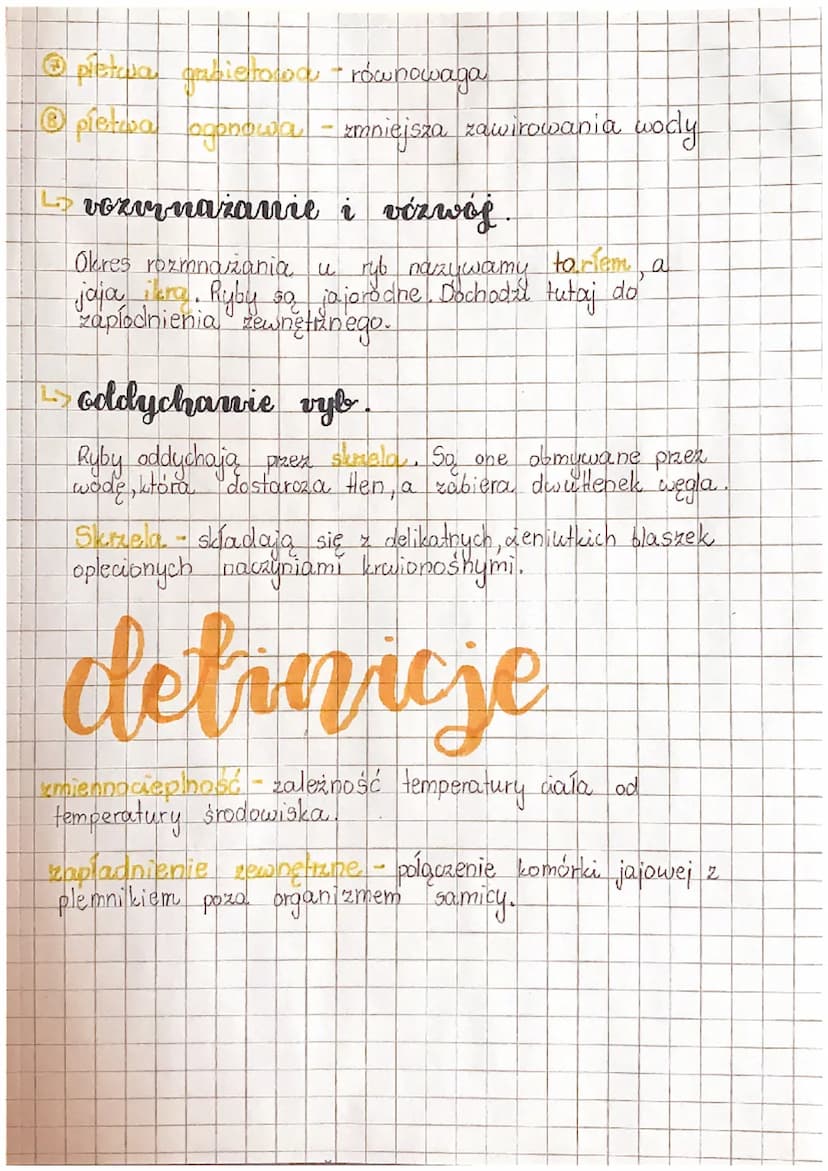 ⑦ płetwa grzbietowa - równowaga
⑧ płetwa ogonowa - zmniejsza zawirowania wody
↳ rozmnażanie i rozwój.
Okres rozmnażania u ryb nazywamy tarłem, a
jaja ikrą. Ryby są jajorodne. Dochodzi tutaj do
zapłodnienia zewnętrznego.
↳ oddychanie ryb.
Ryby oddychają przez skrzela. Są one obmywane przez
wodę, która dostarcza tlen, a zabiera dwutlenek węgla.
Skrzela - składają się z delikatnych, cieniutkich blaszek
oplecionych naczyniami krwionośnymi.
definicje
zmiennocieplność - zależność temperatury ciała od
temperatury środowiska.
zapładnienie zewnętrzne - połączenie komórki jajowej z
plemnikiem poza organizmem samicy.